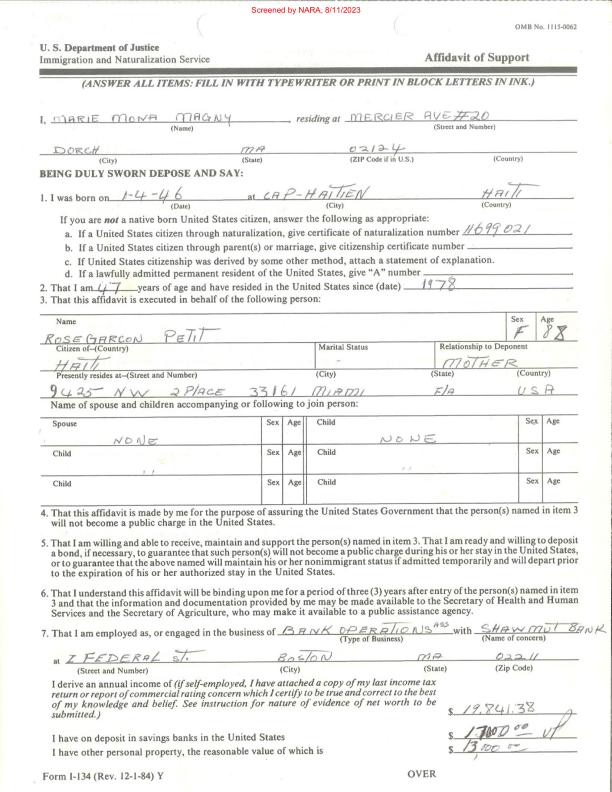 Screened by NARA, 8/11/2023
OMB No. 1115-0062
U. S. Department of Justice
Immigration and Naturalization Service Affidavit of Support
(ANSWER ALL ITEMS: FILL IN WITH TYPEWRITER OR PRINT IN BLOCK LETTERS IN INK.)
I, MARIE MONA MAGNY, residing at MERCIER AVE #20
(Name) (Street and Number)
DORCH MA 02124
(City) (State) (ZIP Code if in U.S.) (Country)
BEING DULY SWORN DEPOSE AND SAY:
1. I was born on 1-4-46 at CAP-HAITIEN HAITI
(Date) (City) (Country)
If you are not a native born United States citizen, answer the following as appropriate:
a. If a United States citizen through naturalization, give certificate of naturalization number 11699021
b. If a United States citizen through parent(s) or marriage, give citizenship certificate number
c. If United States citizenship was derived by some other method, attach a statement of explanation.
d. If a lawfully admitted permanent resident of the United States, give "A" number
2. That I am 47 years of age and have resided in the United States since (date) 1978
3. That this affidavit is executed in behalf of the following person:
Name Sex Age
ROSE GARCON PETIT F 88
Citizen of--(Country) Marital Status Relationship to Deponent
HAITI - MOTHER
Presently resides at--(Street and Number) (City) (State) (Country)
9425 NW 2 PLACE 33161 MIAMI F/A USA
Name of spouse and children accompanying or following to join person:
Spouse Sex Age Child Sex Age
NONE NONE
Child Sex Age Child Sex Age
" "
Child Sex Age Child Sex Age
4. That this affidavit is made by me for the purpose of assuring the United States Government that the person(s) named in item 3
will not become a public charge in the United States.
5. That I am willing and able to receive, maintain and support the person(s) named in item 3. That I am ready and willing to deposit
a bond, if necessary, to guarantee that such person(s) will not become a public charge during his or her stay in the United States,
or to guarantee that the above named will maintain his or her nonimmigrant status if admitted temporarily and will depart prior
to the expiration of his or her authorized stay in the United States.
6. That I understand this affidavit will be binding upon me for a period of three (3) years after entry of the person(s) named in item
3 and that the information and documentation provided by me may be made available to the Secretary of Health and Human
Services and the Secretary of Agriculture, who may make it available to a public assistance agency.
7. That I am employed as, or engaged in the business of BANK OPERATIONS ASS with SHAWMUT BANK
(Type of Business) (Name of concern)
at I FEDERAL St. BOSTON MA 02211
(Street and Number) (City) (State) (Zip Code)
I derive an annual income of (if self-employed, I have attached a copy of my last income tax
return or report of commercial rating concern which I certify to be true and correct to the best
of my knowledge and belief. See instruction for nature of evidence of net worth to be
submitted.) $ 19.841.38
I have on deposit in savings banks in the United States $
I have other personal property, the reasonable value of which is $
Form I-134 (Rev. 12-1-84) Y OVER